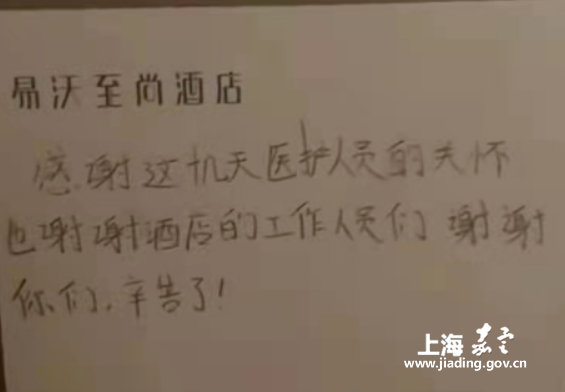 易沃至尚酒店
感谢这几天医护人员的关怀
也谢谢酒店的工作人员们 谢谢
你们，辛苦了！
上海嘉定
www.jiading.gov.cn